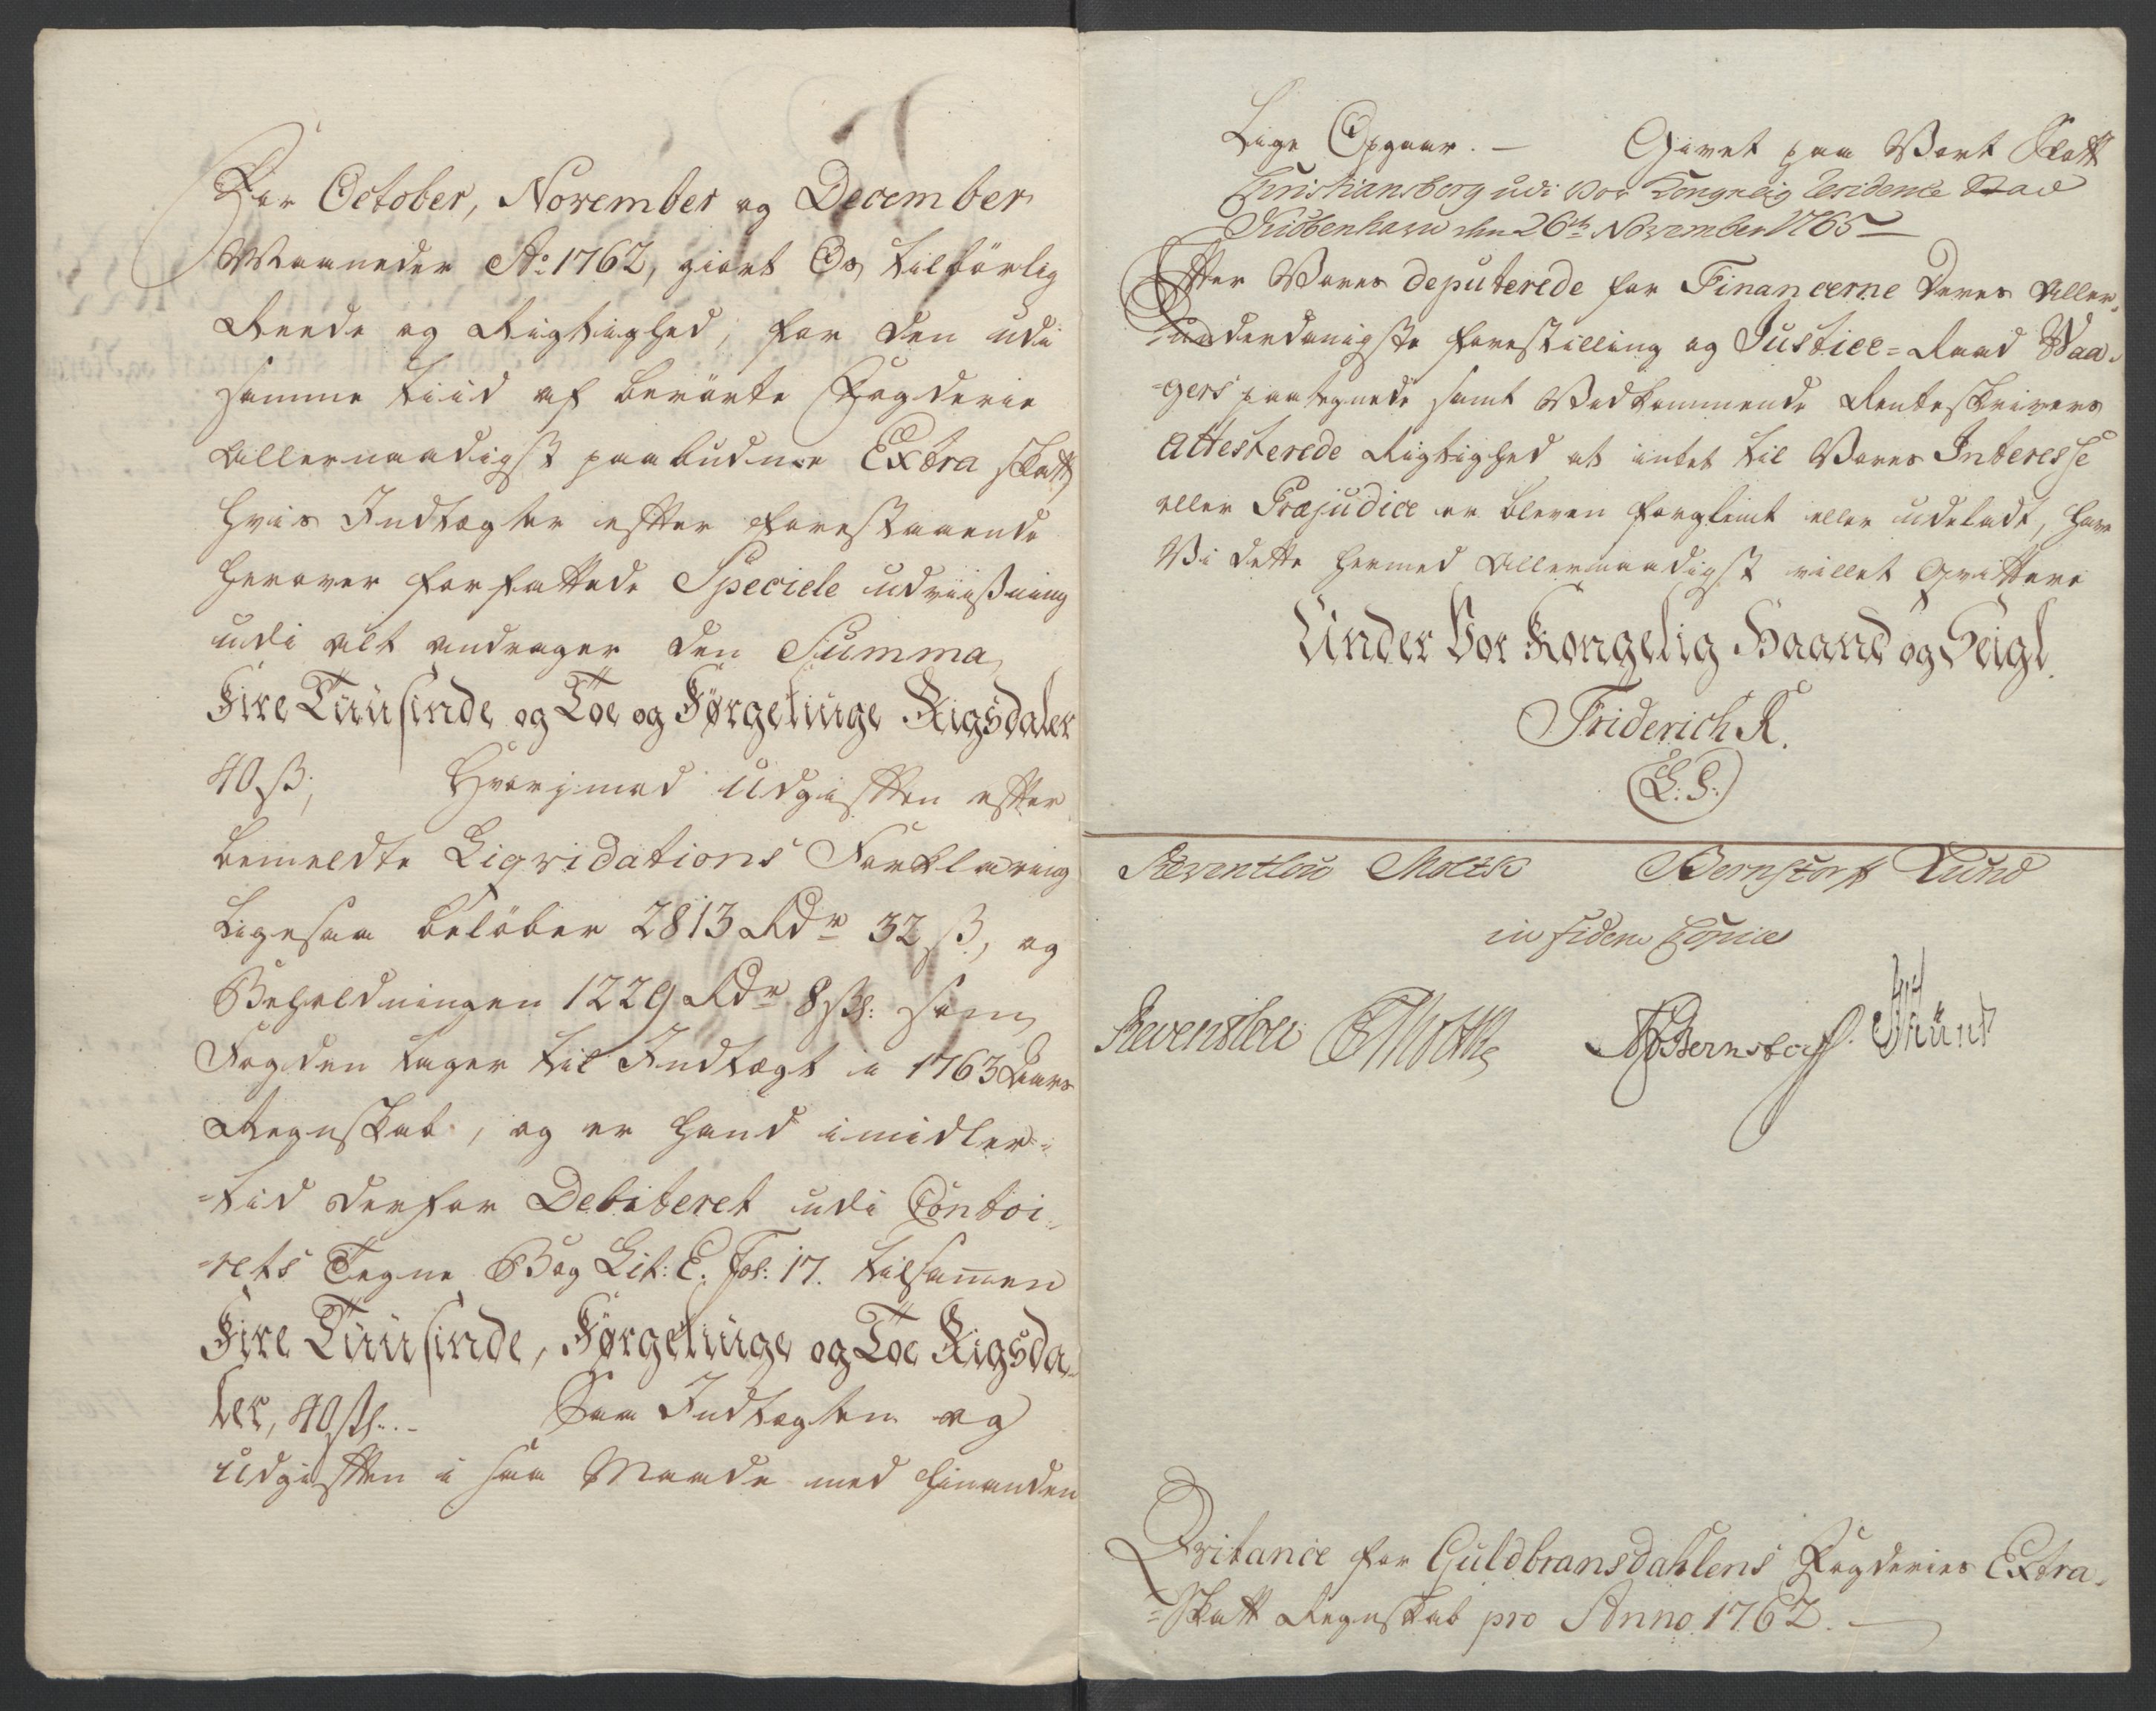 For October, November og December
Maaneder Ao. 1762, giort Os tilbörlig
Reede og Rigtighed, for den udi
samme tiid af berörte Fogderie
Allernaadigst paabudne Extra Skatt,
hvis Indtægter efter forestaaende
herover forfattede Speciele udviißning
udi alt andrager den Summa
Fire Tuusinde og Toe ogFørgetiuge Rigsdaler
40 ß; Hvorjmod Udgiften efter
bemeldte Liqvidations Forklaring
ligesaa belöber 2813 Rdr 32 ß, og
Beholdningen 1229 Rdr 8 ßs: som
Fogden tager til Indtægt i 1763 Aars
Regnskab, og er hand imidler=
=tid derfor Debiteret udi Contoi=
=rets Tegne Bog Lit: E. Fol: 17. tilsam̄en
Fire Tuusinde, Førgetiuge og Toe Rigsda=
ler, 40 ßs. Saa Indtægten og
Udgiften i saa Maade med hinanden
Lige Opgaar. — Givet paa Vort Slott
Christiansborg udi Vor Kongelig Residence Stad
Kiöbenhavn den 26de November 1765 —
Efter Vores deputerede for Financerne deres Aller=
underdanigste forestilling og Justice=Raad Waa=
=gers paategnede samt Vedkommende Renteskrivers
attesterede Rigtighed at intet til Vores Interesse
eller Præjudice er bleven forglemt eller udeladt, have
Vi dette hermed Allernaadigst villet Qvittere
Under Vor Kongelig Haand og Seigl.
Friderich R.
(L. S.)
Reventlou Moltke Bernstorff Lund
in fidem Copiæ
Reventlou Moltke Bernstorff.
Qvitance for Guldbransdahlens Fogderies Extra=
=Skatt Regnskab pro Anno 1762. —